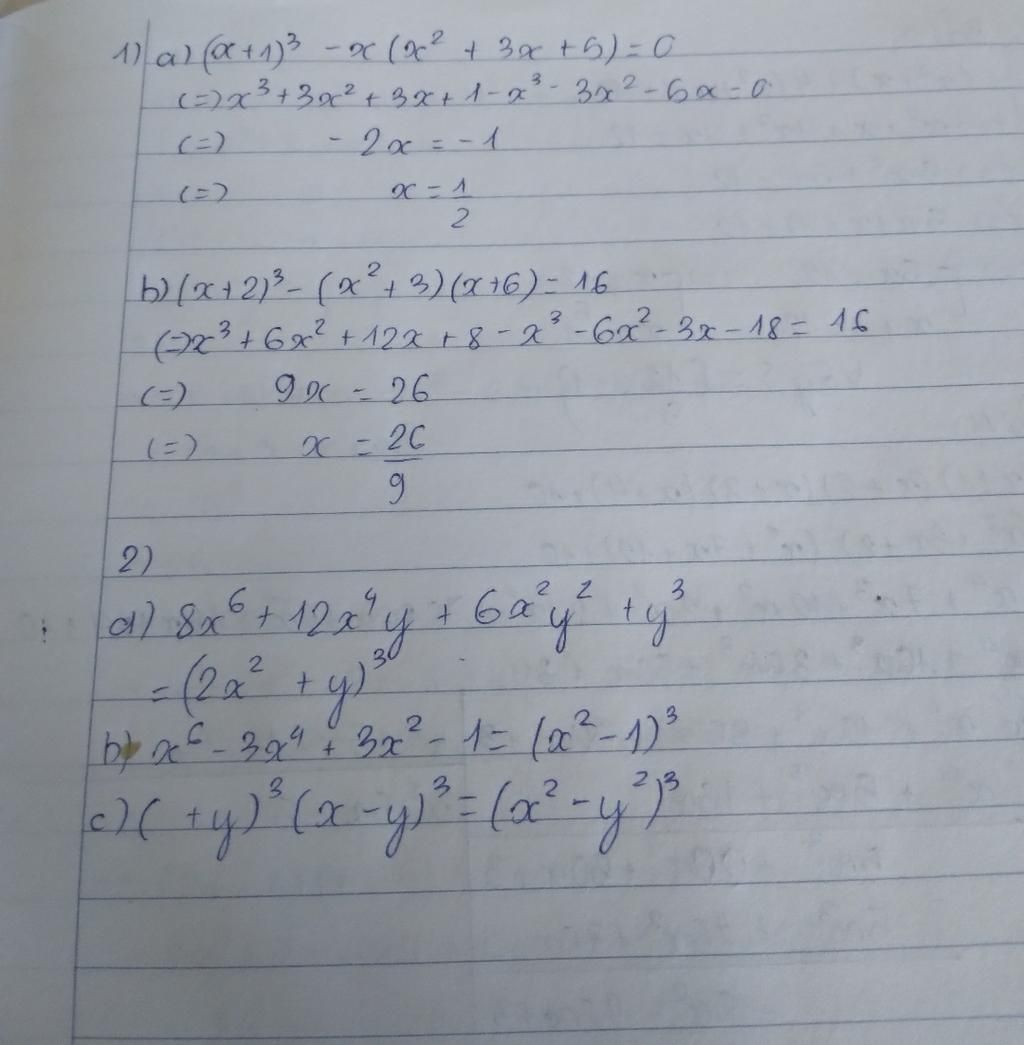 1) a) (x+1)³ - x(x² + 3x + 5) = 0
(=) x³ + 3x² + 3x + 1 - x³ - 3x² - 5x = 0
(=) - 2x = -1
(=) x = 1/2
b) (x+2)³ - (x² + 3)(x+6) = 16
(=) x³ + 6x² + 12x + 8 - x³ - 6x² - 3x - 18 = 16
(=) 9x = 26
(=) x = 26/9
2)
a) 8x⁶ + 12x⁴y + 6x²y² + y³
= (2x² + y)³
b) x⁶ - 3x⁴ + 3x² - 1 = (x² - 1)³
c) ( +y)³ (x - y)³ = (x² - y²)³